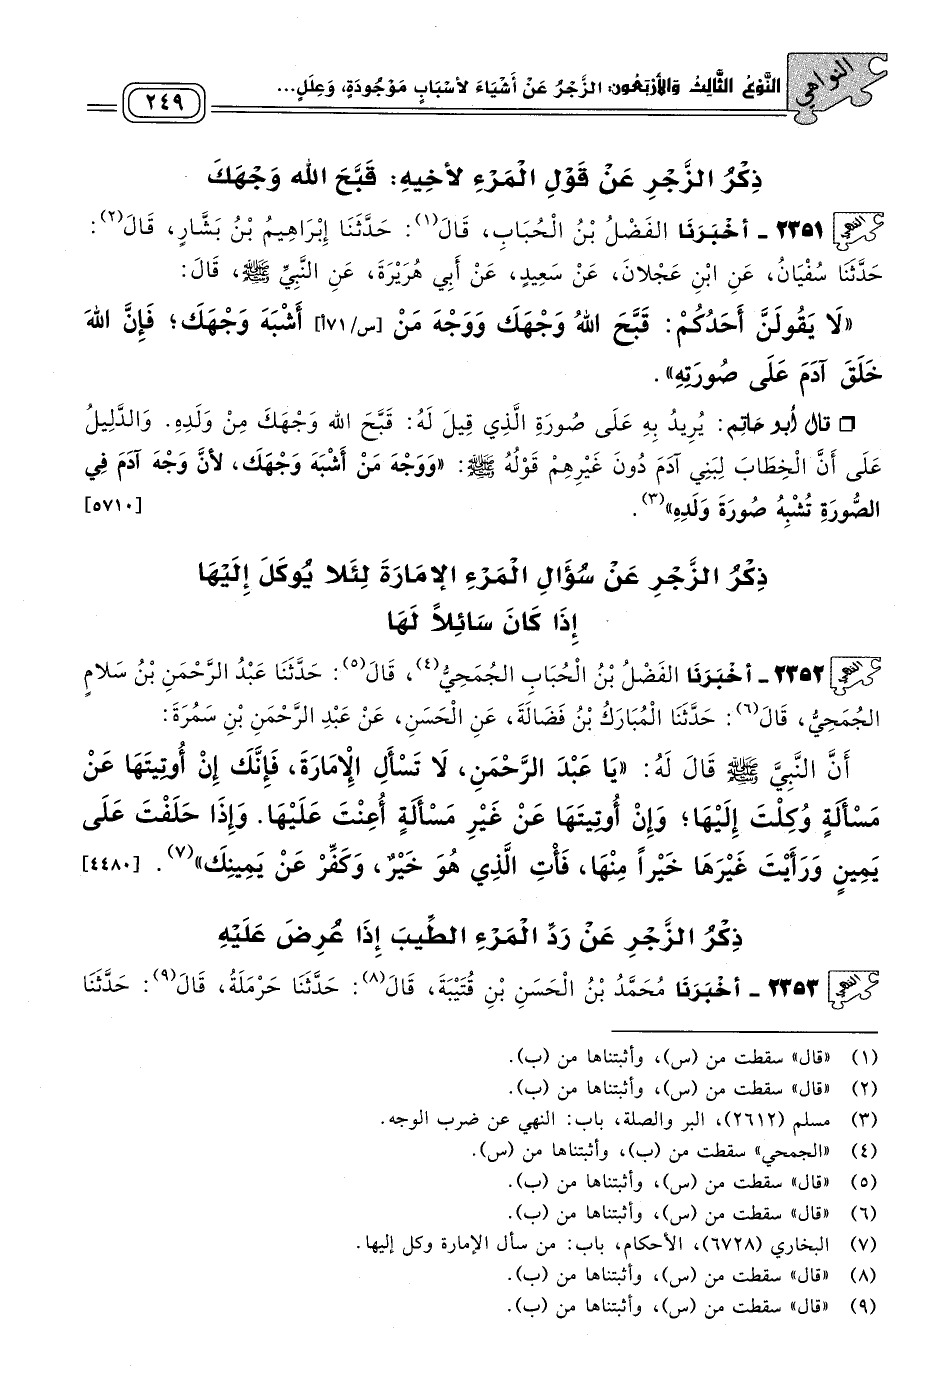 النواهي
النَّوْعُ الثَّالِثُ وَالأَرْبَعُونَ: الزَّجْرُ عَنْ أَشْيَاءَ لأَسْبَابٍ مَوْجُودَةٍ، وَعِلَلٍ...
٢٤٩
ذِكْرُ الزَّجْرِ عَنْ قَوْلِ الْمَرْءِ لأَخِيهِ: قَبَّحَ الله وَجْهَكَ
النهي ٢٣٥١ ـ أَخْبَرَنَا الفَضْلُ بْنُ الْحُبَابِ، قَالَ(١): حَدَّثَنَا إِبْرَاهِيمُ بْنُ بَشَّارٍ، قَالَ(٢):
حَدَّثَنَا سُفْيَانُ، عَنِ ابْنِ عَجْلانَ، عَنْ سَعِيدٍ، عَنْ أَبِي هُرَيْرَةَ، عَنِ النَّبِيِّ ﷺ، قَالَ:
«لَا يَقُولَنَّ أَحَدُكُمْ: قَبَّحَ اللهُ وَجْهَكَ وَوَجْهَ مَنْ [س/٧١أ] أَشْبَهَ وَجْهَكَ؛ فَإِنَّ اللهَ
خَلَقَ آدَمَ عَلَى صُورَتِهِ».
❒ قال أبو حاتم: يُرِيدُ بِهِ عَلَى صُورَةِ الَّذِي قِيلَ لَهُ: قَبَّحَ الله وَجْهَكَ مِنْ وَلَدِهِ. وَالدَّلِيلُ
عَلَى أَنَّ الْخِطَابَ لِبَنِي آدَمَ دُونَ غَيْرِهِمْ قَوْلُهُ ﷺ: «وَوَجْهَ مَنْ أَشْبَهَ وَجْهَكَ، لأَنَّ وَجْهَ آدَمَ فِي
الصُّورَةِ تُشْبِهُ صُورَةَ وَلَدِهِ»(٣). [٥٧١٠]
ذِكْرُ الزَّجْرِ عَنْ سُؤَالِ الْمَرْءِ الإِمَارَةَ لِئَلا يُوكَلَ إِلَيْهَا
إِذَا كَانَ سَائِلاً لَهَا
النهي ٢٣٥٢ ـ أَخْبَرَنَا الفَضْلُ بْنُ الْحُبَابِ الجُمَحِيُّ(٤)، قَالَ(٥): حَدَّثَنَا عَبْدُ الرَّحْمَنِ بْنُ سَلامٍ
الجُمَحِيُّ، قَالَ(٦): حَدَّثَنَا الْمُبَارَكُ بْنُ فَضَالَةَ، عَنِ الْحَسَنِ، عَنْ عَبْدِ الرَّحْمَنِ بْنِ سَمُرَةَ:
أَنَّ النَّبِيَّ ﷺ قَالَ لَهُ: «يَا عَبْدَ الرَّحْمَنِ، لَا تَسْأَلِ الْإِمَارَةَ، فَإِنَّكَ إِنْ أُوتِيتَهَا عَنْ
مَسْأَلَةٍ وُكِلْتَ إِلَيْهَا؛ وَإِنْ أُوتِيتَهَا عَنْ غَيْرِ مَسْأَلَةٍ أُعِنْتَ عَلَيْهَا. وَإِذَا حَلَفْتَ عَلَى
يَمِينٍ وَرَأَيْتَ غَيْرَهَا خَيْراً مِنْهَا، فَأْتِ الَّذِي هُوَ خَيْرٌ، وَكَفِّرْ عَنْ يَمِينِكَ»(٧). [٤٤٨٠]
ذِكْرُ الزَّجْرِ عَنْ رَدِّ الْمَرْءِ الطِّيبَ إِذَا عُرِضَ عَلَيْهِ
النهي ٢٣٥٣ ـ أَخْبَرَنَا مُحَمَّدُ بْنُ الْحَسَنِ بْنِ قُتَيْبَةَ، قَالَ(٨): حَدَّثَنَا حَرْمَلَةُ، قَالَ(٩): حَدَّثَنَا
(١) «قال» سقطت من (س)، وأثبتناها من (ب).
(٢) «قال» سقطت من (س)، وأثبتناها من (ب).
(٣) مسلم (٢٦١٢)، البر والصلة، باب: النهي عن ضرب الوجه.
(٤) «الجمحي» سقطت من (ب)، وأثبتناها من (س).
(٥) «قال» سقطت من (س)، وأثبتناها من (ب).
(٦) «قال» سقطت من (س)، وأثبتناها من (ب).
(٧) البخاري (٦٧٢٨)، الأحكام، باب: من سأل الإمارة وكل إليها.
(٨) «قال» سقطت من (س)، وأثبتناها من (ب).
(٩) «قال» سقطت من (س)، وأثبتناها من (ب).